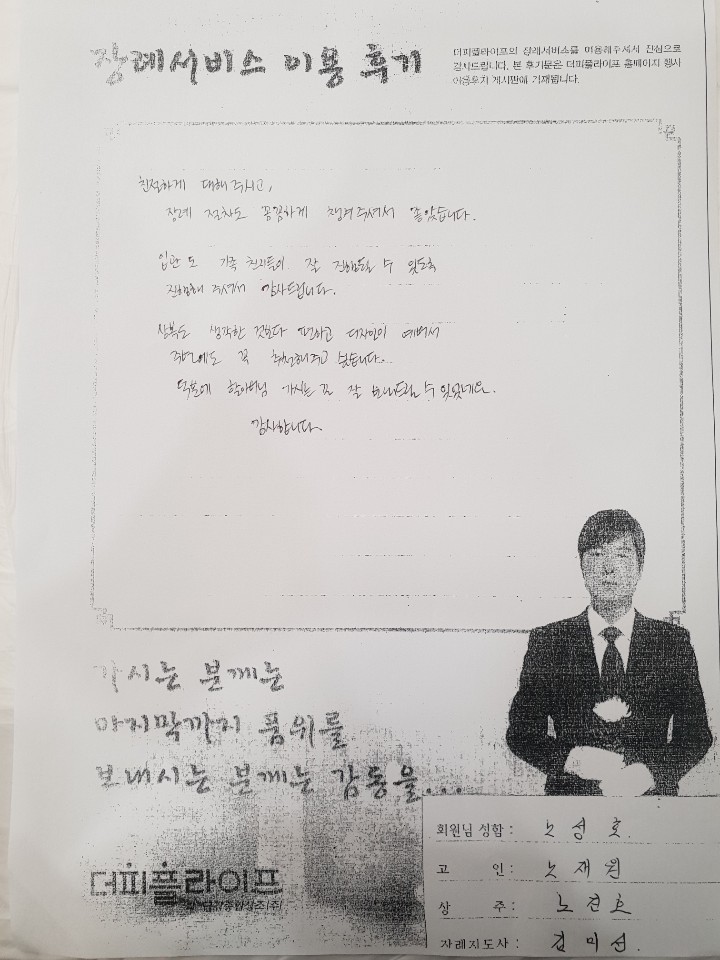 장례서비스 이용 후기
더피플라이프의 장례서비스를 이용해주셔서 진심으로
감사드립니다. 본 후기문은 더피플라이프 홈페이지 행사
이용후기 게시판에 기재됩니다.
친절하게 대해주시고,
장례 절차도 꼼꼼하게 챙겨주셔서 좋았습니다.
입관도 가족 친지들이 잘 진행될 수 있도록
진행해 주셔서 감사드립니다.
상복도 생각한 것보다 편하고 디자인이 예뻐서
주변에도 꼭 추천해주고 싶습니다.
덕분에 할아버님 가시는 길 잘 보내드릴 수 있었네요.
감사합니다.
가시는 분께는
마지막까지 품위를
보내시는 분께는 감동을...
더피플라이프
회원님 성함 : 노성호
고 인 : 노재원
상 주 : 노건호
장례지도사 : 김미선